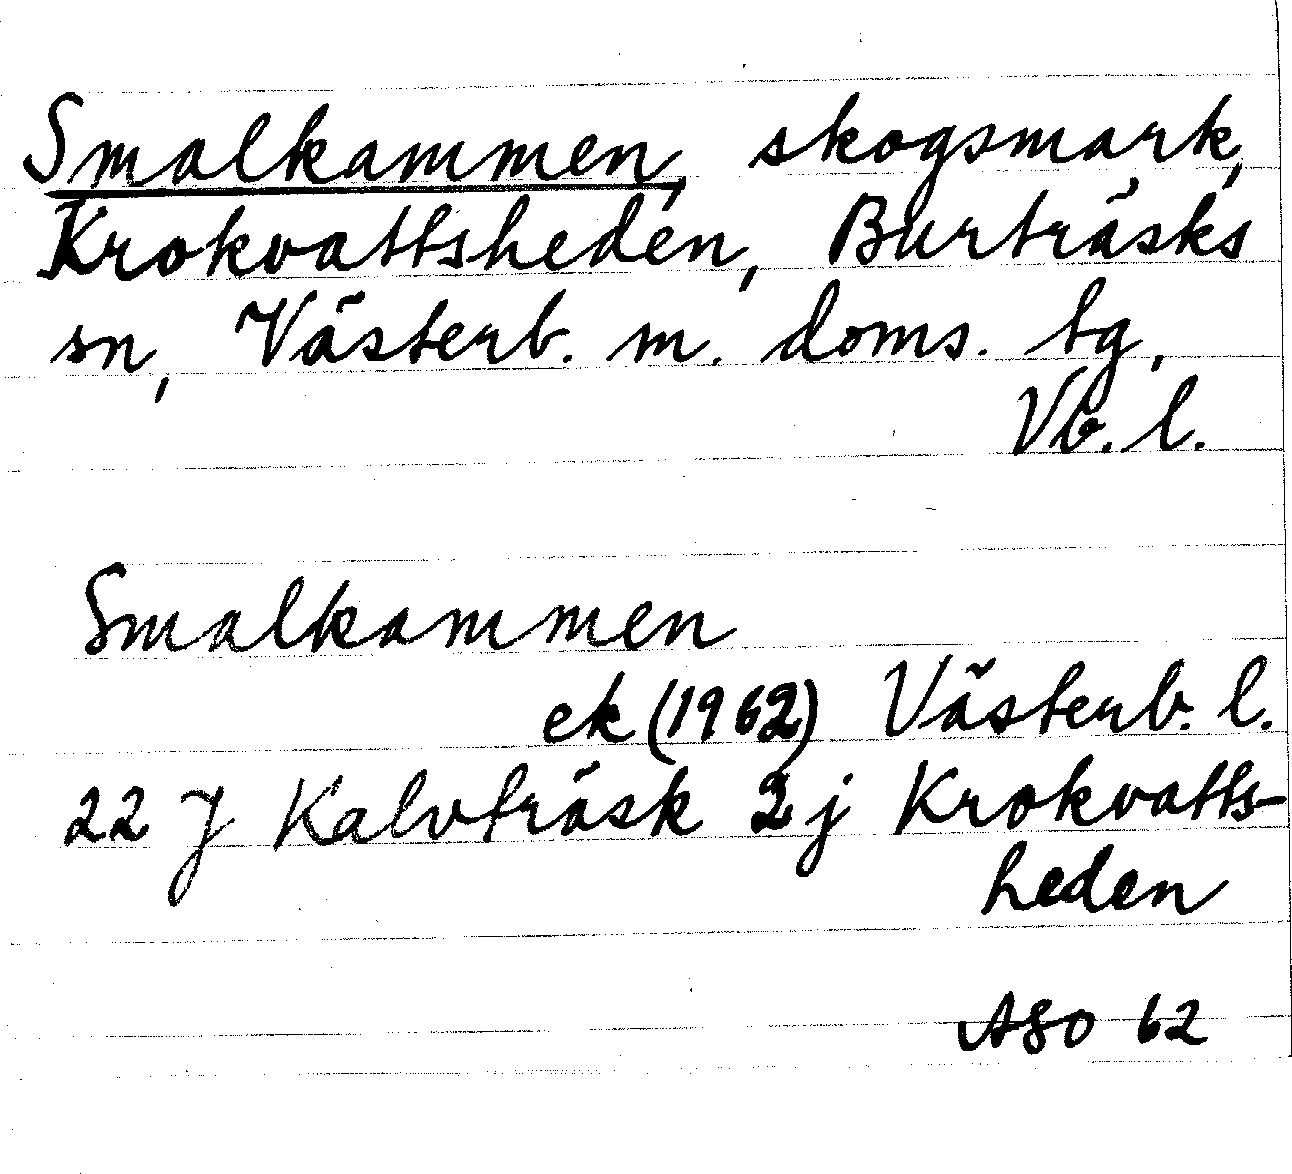 Smalkammen, skogsmark,
Krokvattsheden, Burträsks
sn, Västerb. m. doms. tg,
Vb. l.
Smalkammen
ek (1962) Västerb. l.
22 J Kalvträsk 2 j Krokvatts-
heden
ASO 62